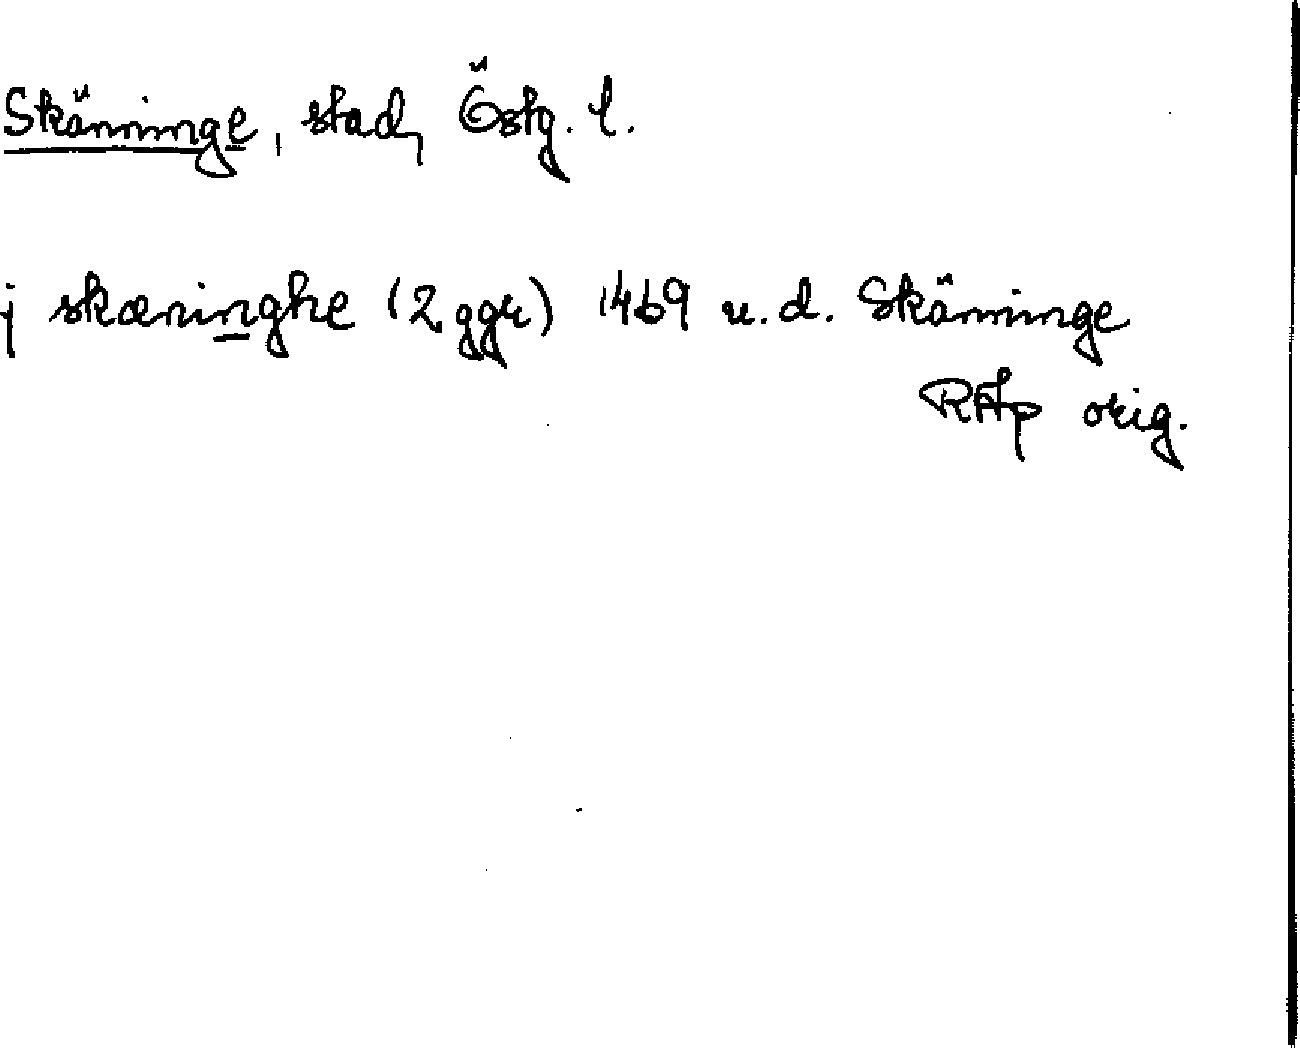 Skänninge, stad, Östg. l.
j skæninghe (2 ggr) 1469 u. d. Skänninge
RAp orig.